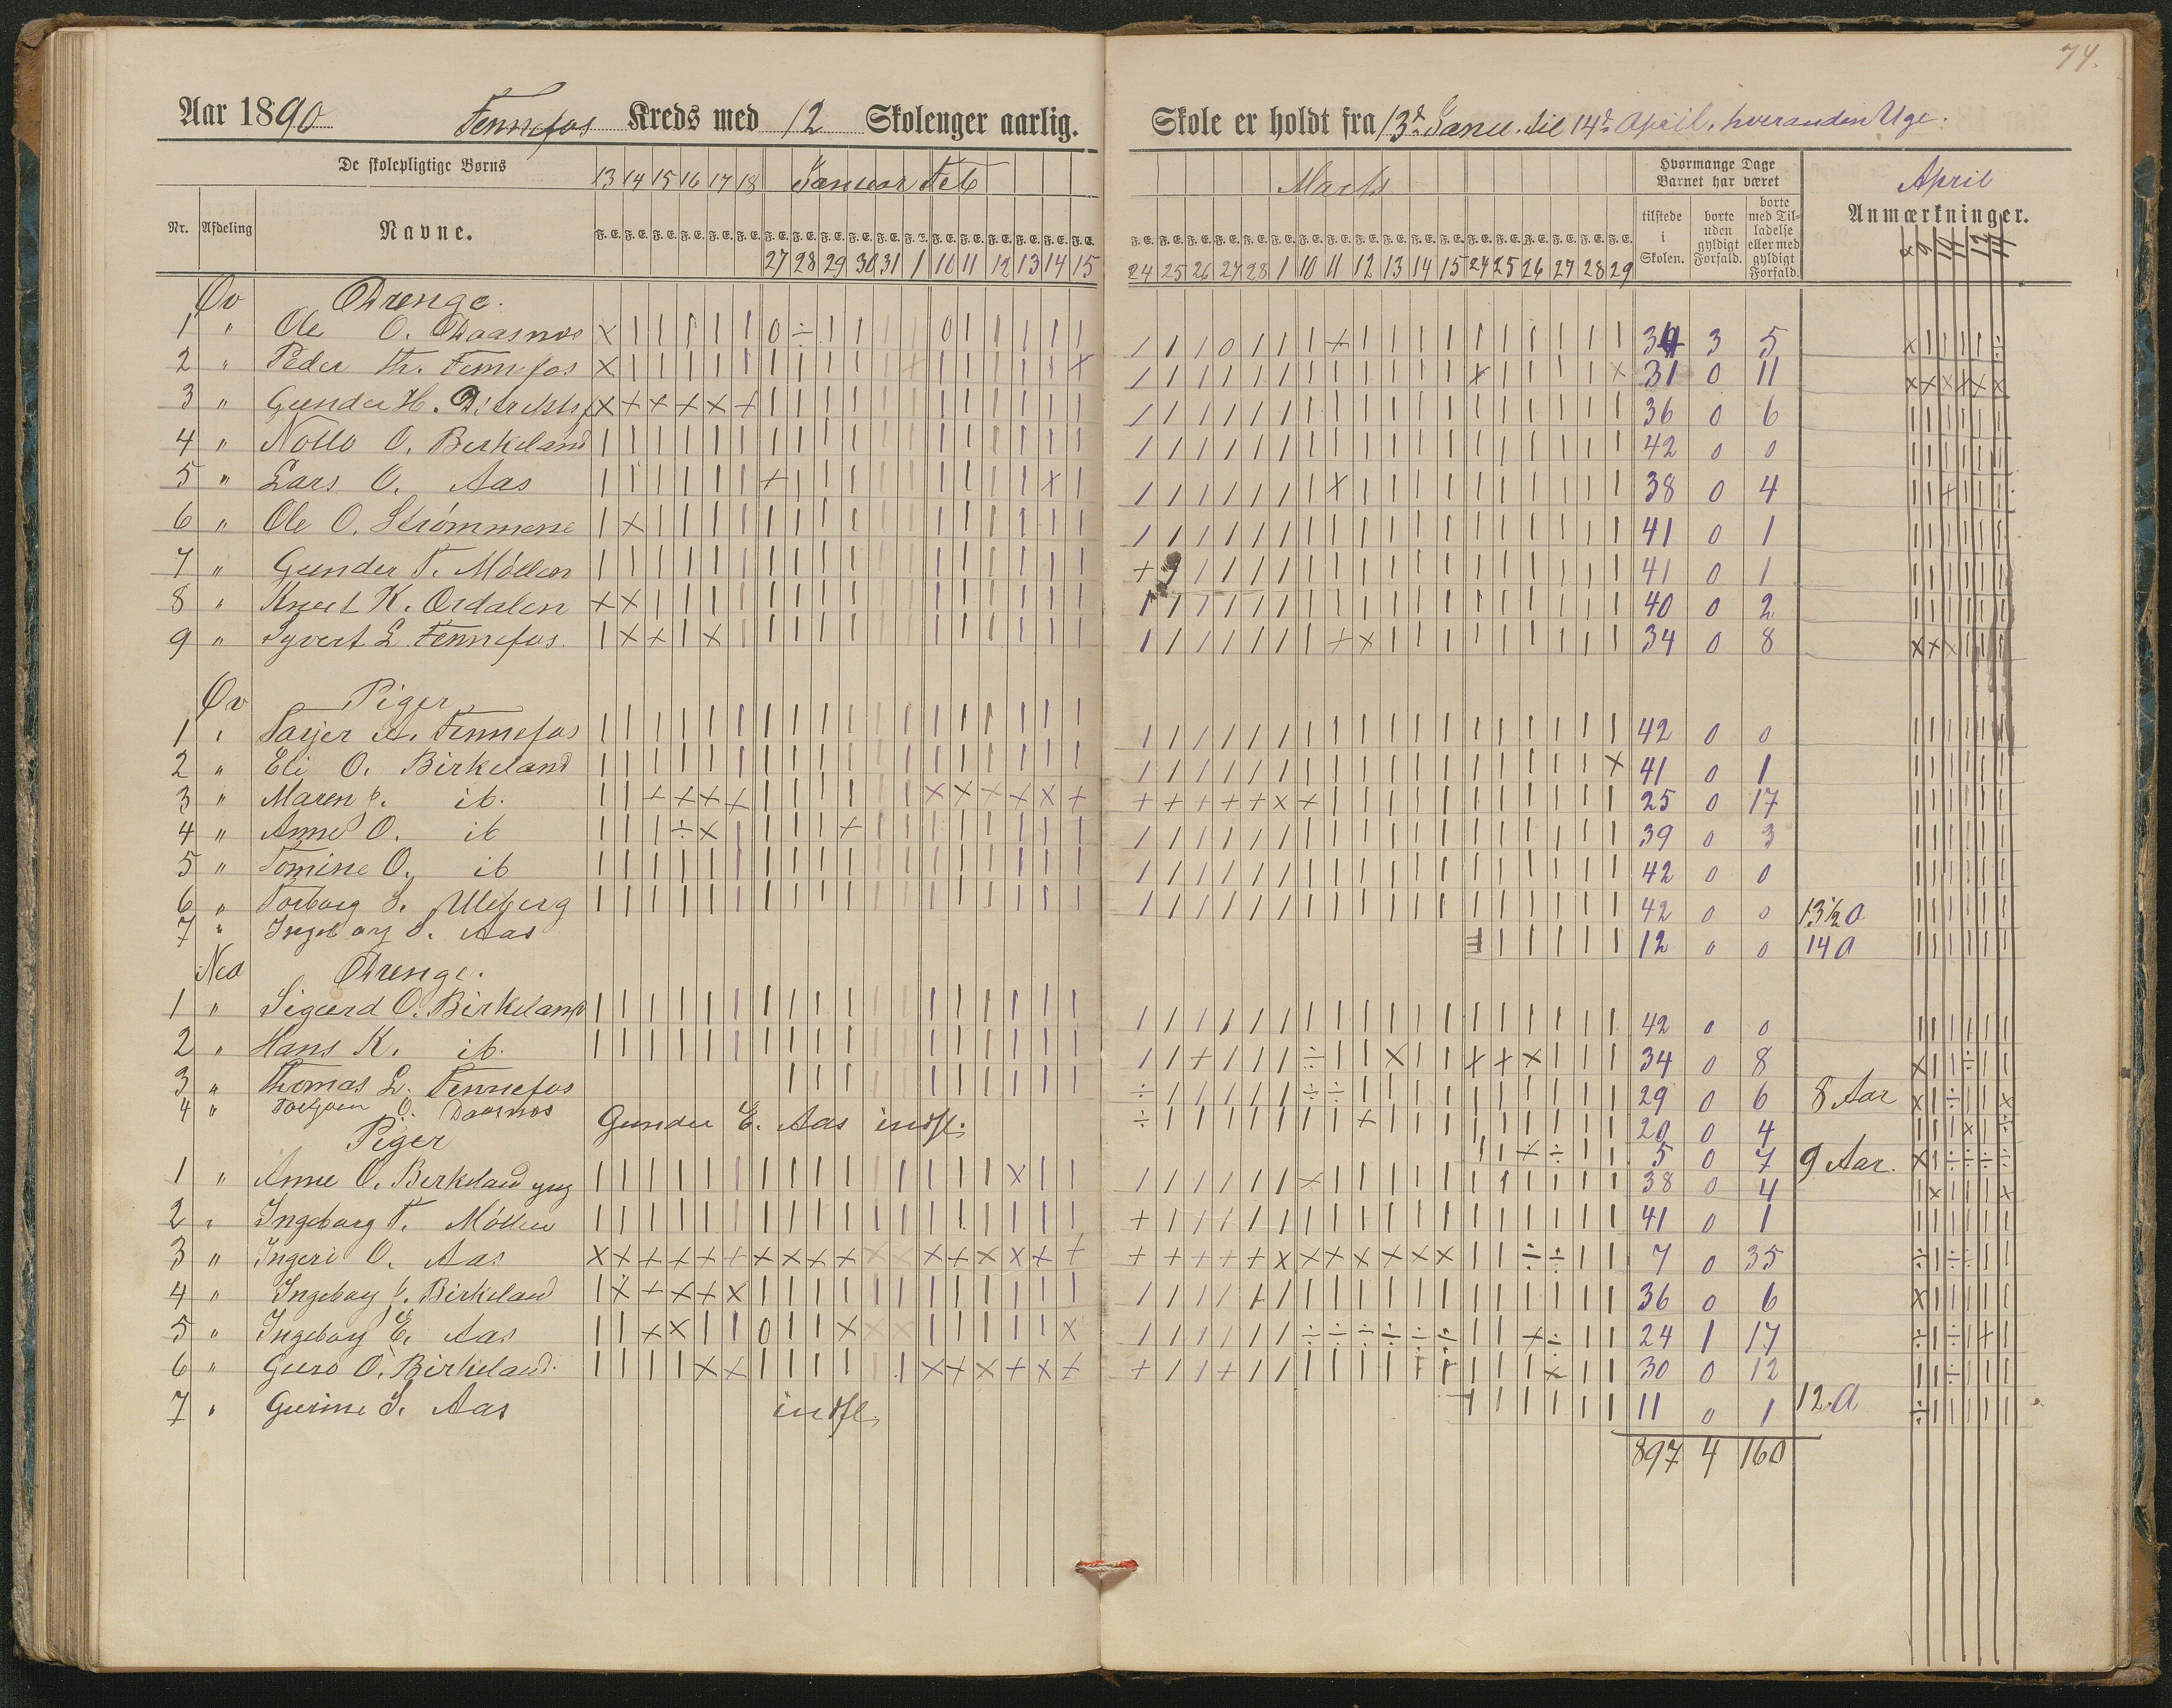 74.
Aar 1890 Fennefos Kreds med 12 Skoleuger aarlig.
Skole er holdt fra 13d Janu. til 14d April, hveranden Uge.
De skolepligtige Børns
13 14 15 16 17 18 Januar Feb
Marts
Hvormange Dage Barnet har været
April
Nr. Afdeling Navne.
F. E. F. E. F. E. F. E. F. E. F. E. F. E. F. E. F. E. F. E. F. E. F. E. F. E. F. E. F. E. F. E. F. E. F. E.
27 28 29 30 31 1 10 11 12 13 14 15
24 25 26 27 28 1 10 11 12 13 14 15 24 25 26 27 28 29
tilstede i Skolen.
borte uden gyldigt Forfald.
borte med Tilladelse eller med gyldigt Forfald.
Anmærkninger.
8 9 10 11 12 14
Øv Drenge.
1 " Ole O. Daasnes 34 3 5
2 " Peder Th. Fennefos 31 0 11
3 " Gunder H. 36 0 6
4 " O. Birkeland 42 0 0
5 " Lars O. Aas 38 0 4
6 " Ole O. Strømmene 41 0 1
7 " Gunder T. Møllen 41 0 1
8 " Knut K. Ordalen 40 0 2
9 " Syvert L. Fennefos. 34 0 8
Øv Piger
1 " Tarjer A. Fennefos 42 0 0
2 " Eli O. Birkeland 41 0 1
3 " Maren P. ib. 25 0 17
4 " Anne O. ib 39 0 3
5 " Tomine O. ib 42 0 0
6 " Torborg S. Uleberg 42 0 0 13½ a
7 " Ingeborg S. Aas 12 0 0 14 a
Ned Drenge.
1 " Sigurd O. Birkeland 42 0 0
2 " Hans K. ib. 34 0 8
3 " Thomas L. Fennefos 29 0 6 8 Aar
4 " O. Daasnes 20 0 4
Gunder E. Aas indfl. 5 0 7 9 Aar.
Piger
1 " Anne O. Birkeland yng 38 0 4
2 " Ingeborg T. Møllen 41 0 1
3 " Ingeri O. Aas 7 0 35
4 " Ingeborg P. Birkeland 36 0 6
5 " Ingeborg E. Aas 24 1 17
6 " Guro O. Birkeland. 30 0 12
7 " Gurine S. Aas indfl. 11 0 1 12. a
897 4 160